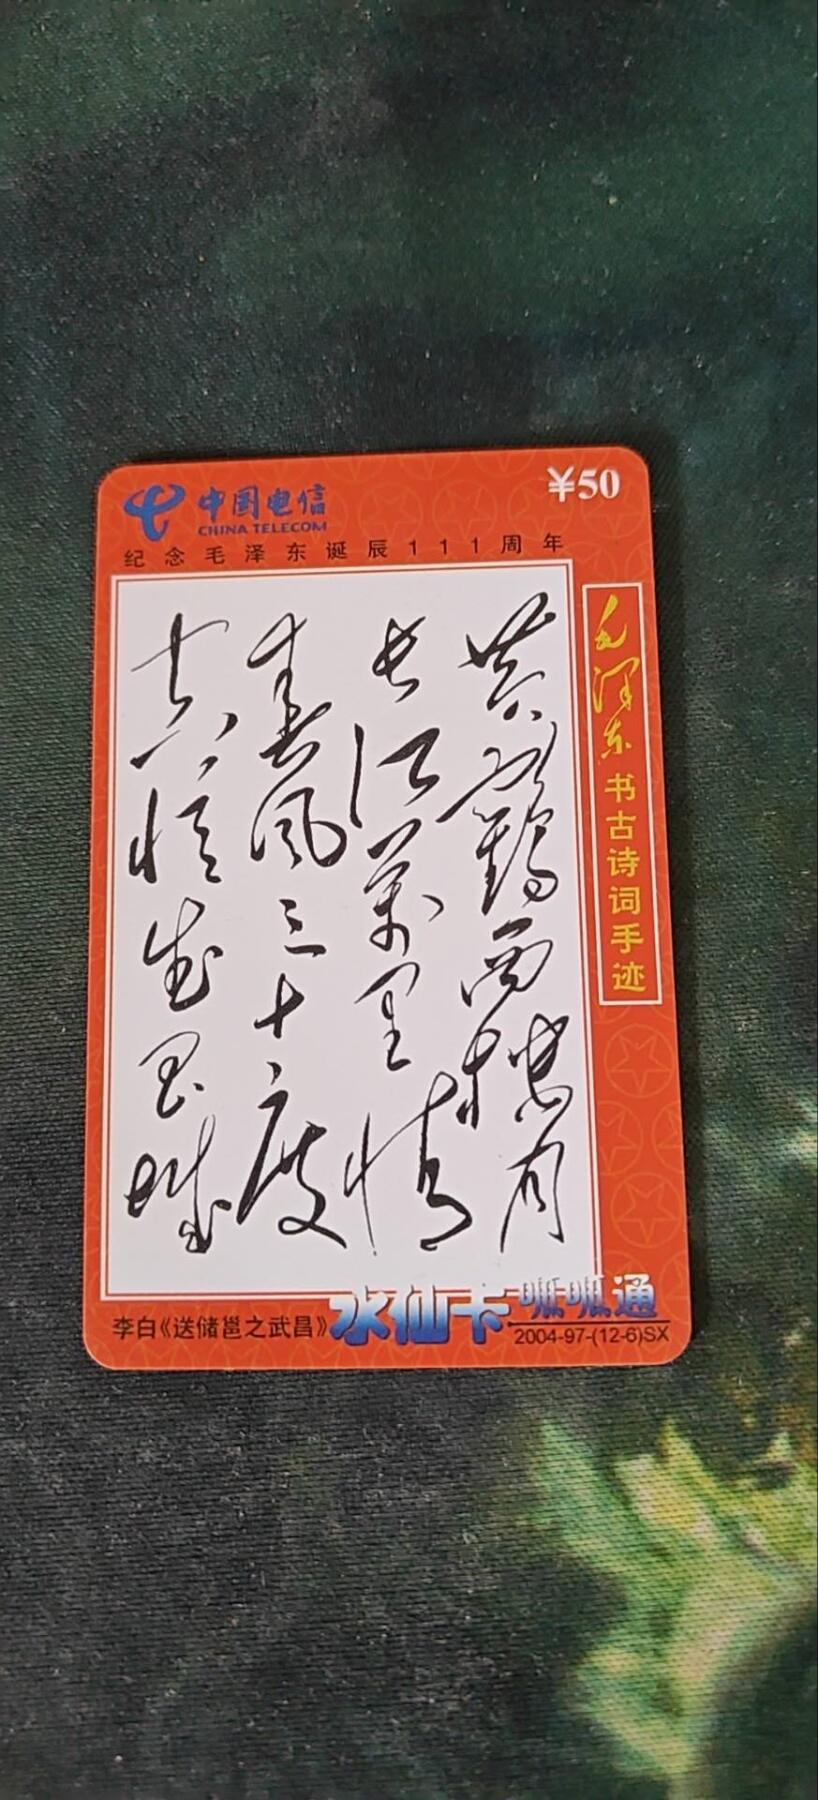 中国电信
CHINA TELECOM
¥50
纪念毛泽东诞辰111周年
毛泽东书古诗词手迹
黄鹤西楼月
长江万里情
春风三十度
空忆武昌城
李白《送储邕之武昌》
水仙卡
呱呱通
2004-97-(12-6)SX